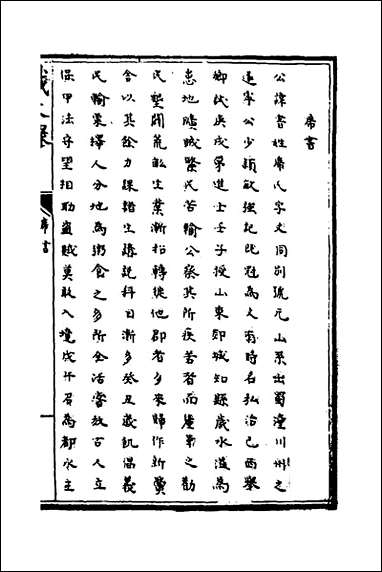 席書
公諱書姓席氏字文同別號元山系出蜀潼川州之
遂寧公少穎敏強記既冠為人有時名弘治己酉舉
鄉試庚戌第進士壬子授山東郯城知縣歲水溢為
患地曠賦繁民苦輸公察其所疾苦者而生息之勸
民墾闢荒蕪生業漸拓轉徙他郡者多來歸作新黌
舍以其餘力課諸生講説科目漸多癸丑歲飢倡義
民輸粟擇人分地為粥食之多所全活嘗放古人立
保甲法守望相助盜賊莫敢入境戊午召為都水主
席書